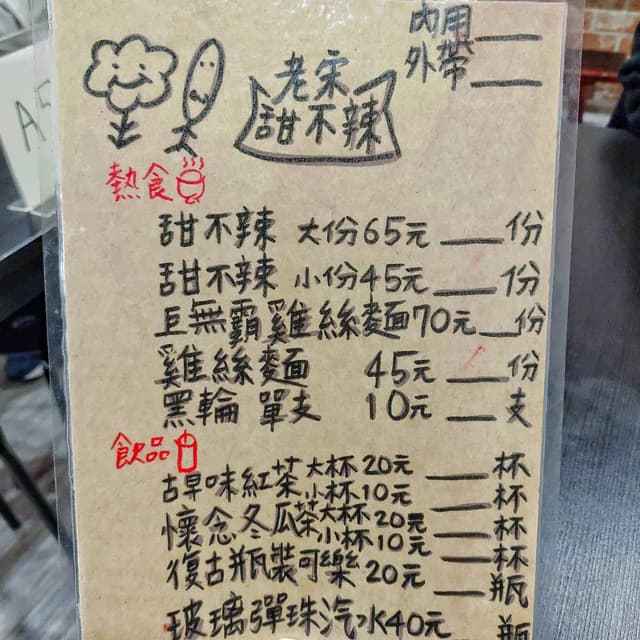 內用___
外帶___
老宋
甜不辣
熱食
甜不辣 大份65元 ___份
甜不辣 小份45元 ___份
巨無霸雞絲麵70元 ___份
雞絲麵 45元 ___份
黑輪 單支 10元 ___支
飲品
古早味紅茶大杯20元 ___杯
小杯10元 ___杯
懷念冬瓜茶大杯20元 ___杯
小杯10元 ___杯
復古瓶裝可樂20元 ___瓶
玻璃彈珠汽水40元 ___瓶